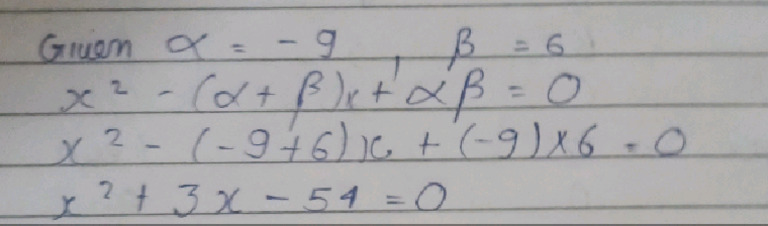 Given α = -9, β = 6
x² - (α + β)x + αβ = 0
x² - (-9+6)x + (-9)×6 = 0
x² + 3x - 54 = 0